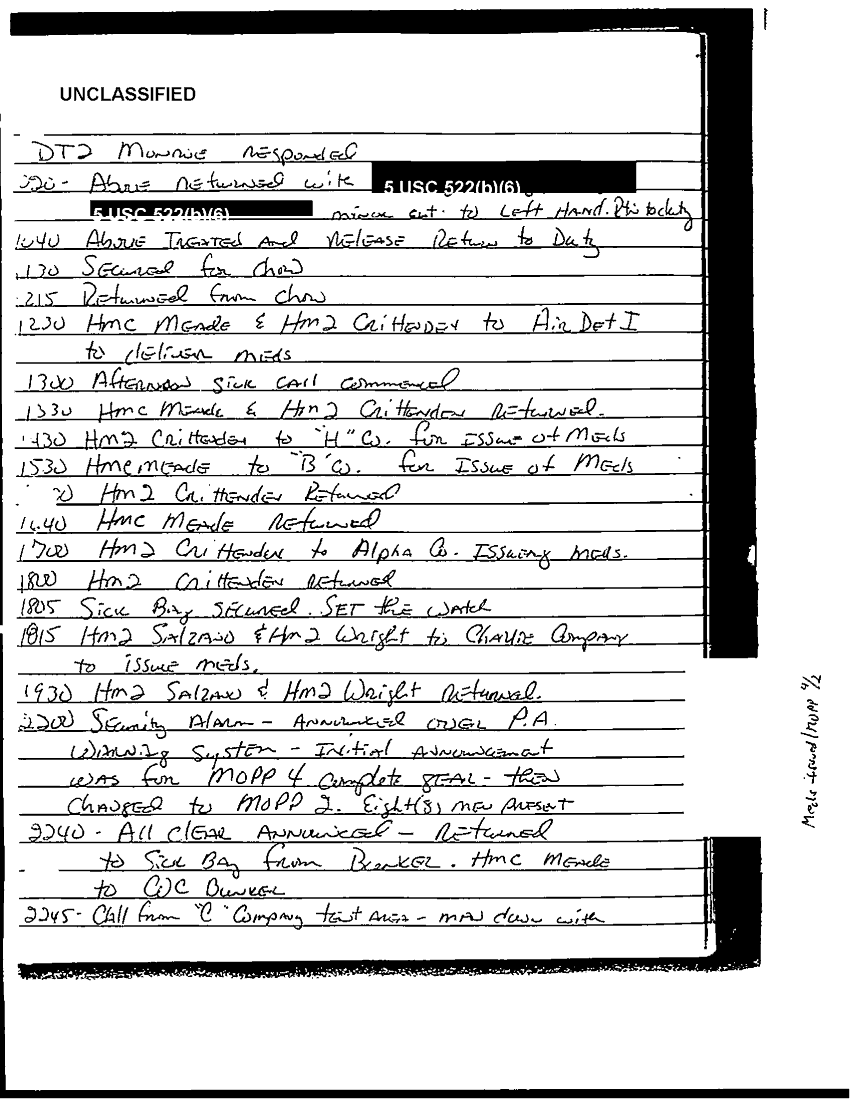 UNCLASSIFIED
DT2 Monroe Responded
Above Returned with 5 USC 522(b)(6)
5 USC 522(b)(6) minor cut to Left Hand. to duty
1040 Above Treated and Release Return to Duty
1130 Secured for chow
1215 Returned from chow
1230 Hmc Meade & Hm2 Crittenden to Air Det I
to deliver meds
1300 Afternoon sick call commenced
1330 Hmc Meade & Hm2 Crittenden Returned.
1430 Hm2 Crittenden to "H" Co. for Issue of Meds
1530 Hmc Meade to "B" Co. for Issue of Meds
Hm2 Crittenden Returned
1640 Hmc Meade Returned
1700 Hm2 Crittenden to Alpha Co. Issuing meds.
1800 Hm2 Crittenden Returned
1805 Sick Bay secured. Set the watch
1815 Hm2 Salzano & Hm2 Wright to Charlie Company
to issue meds.
1930 Hm2 Salzano & Hm2 Wright Returned.
2200 Security Alarm - Announced over P.A.
Warning System - Initial Announcement
was for MOPP 4 complete gear - then
changed to MOPP 2. Eight (8) men present
2240 - All clear Announced - Returned
to Sick Bay from Bunker. Hmc Meade
to COC Bunker
2245 - Call from "C" Company tent area - man down with
Meds issued/MOPP 4/2